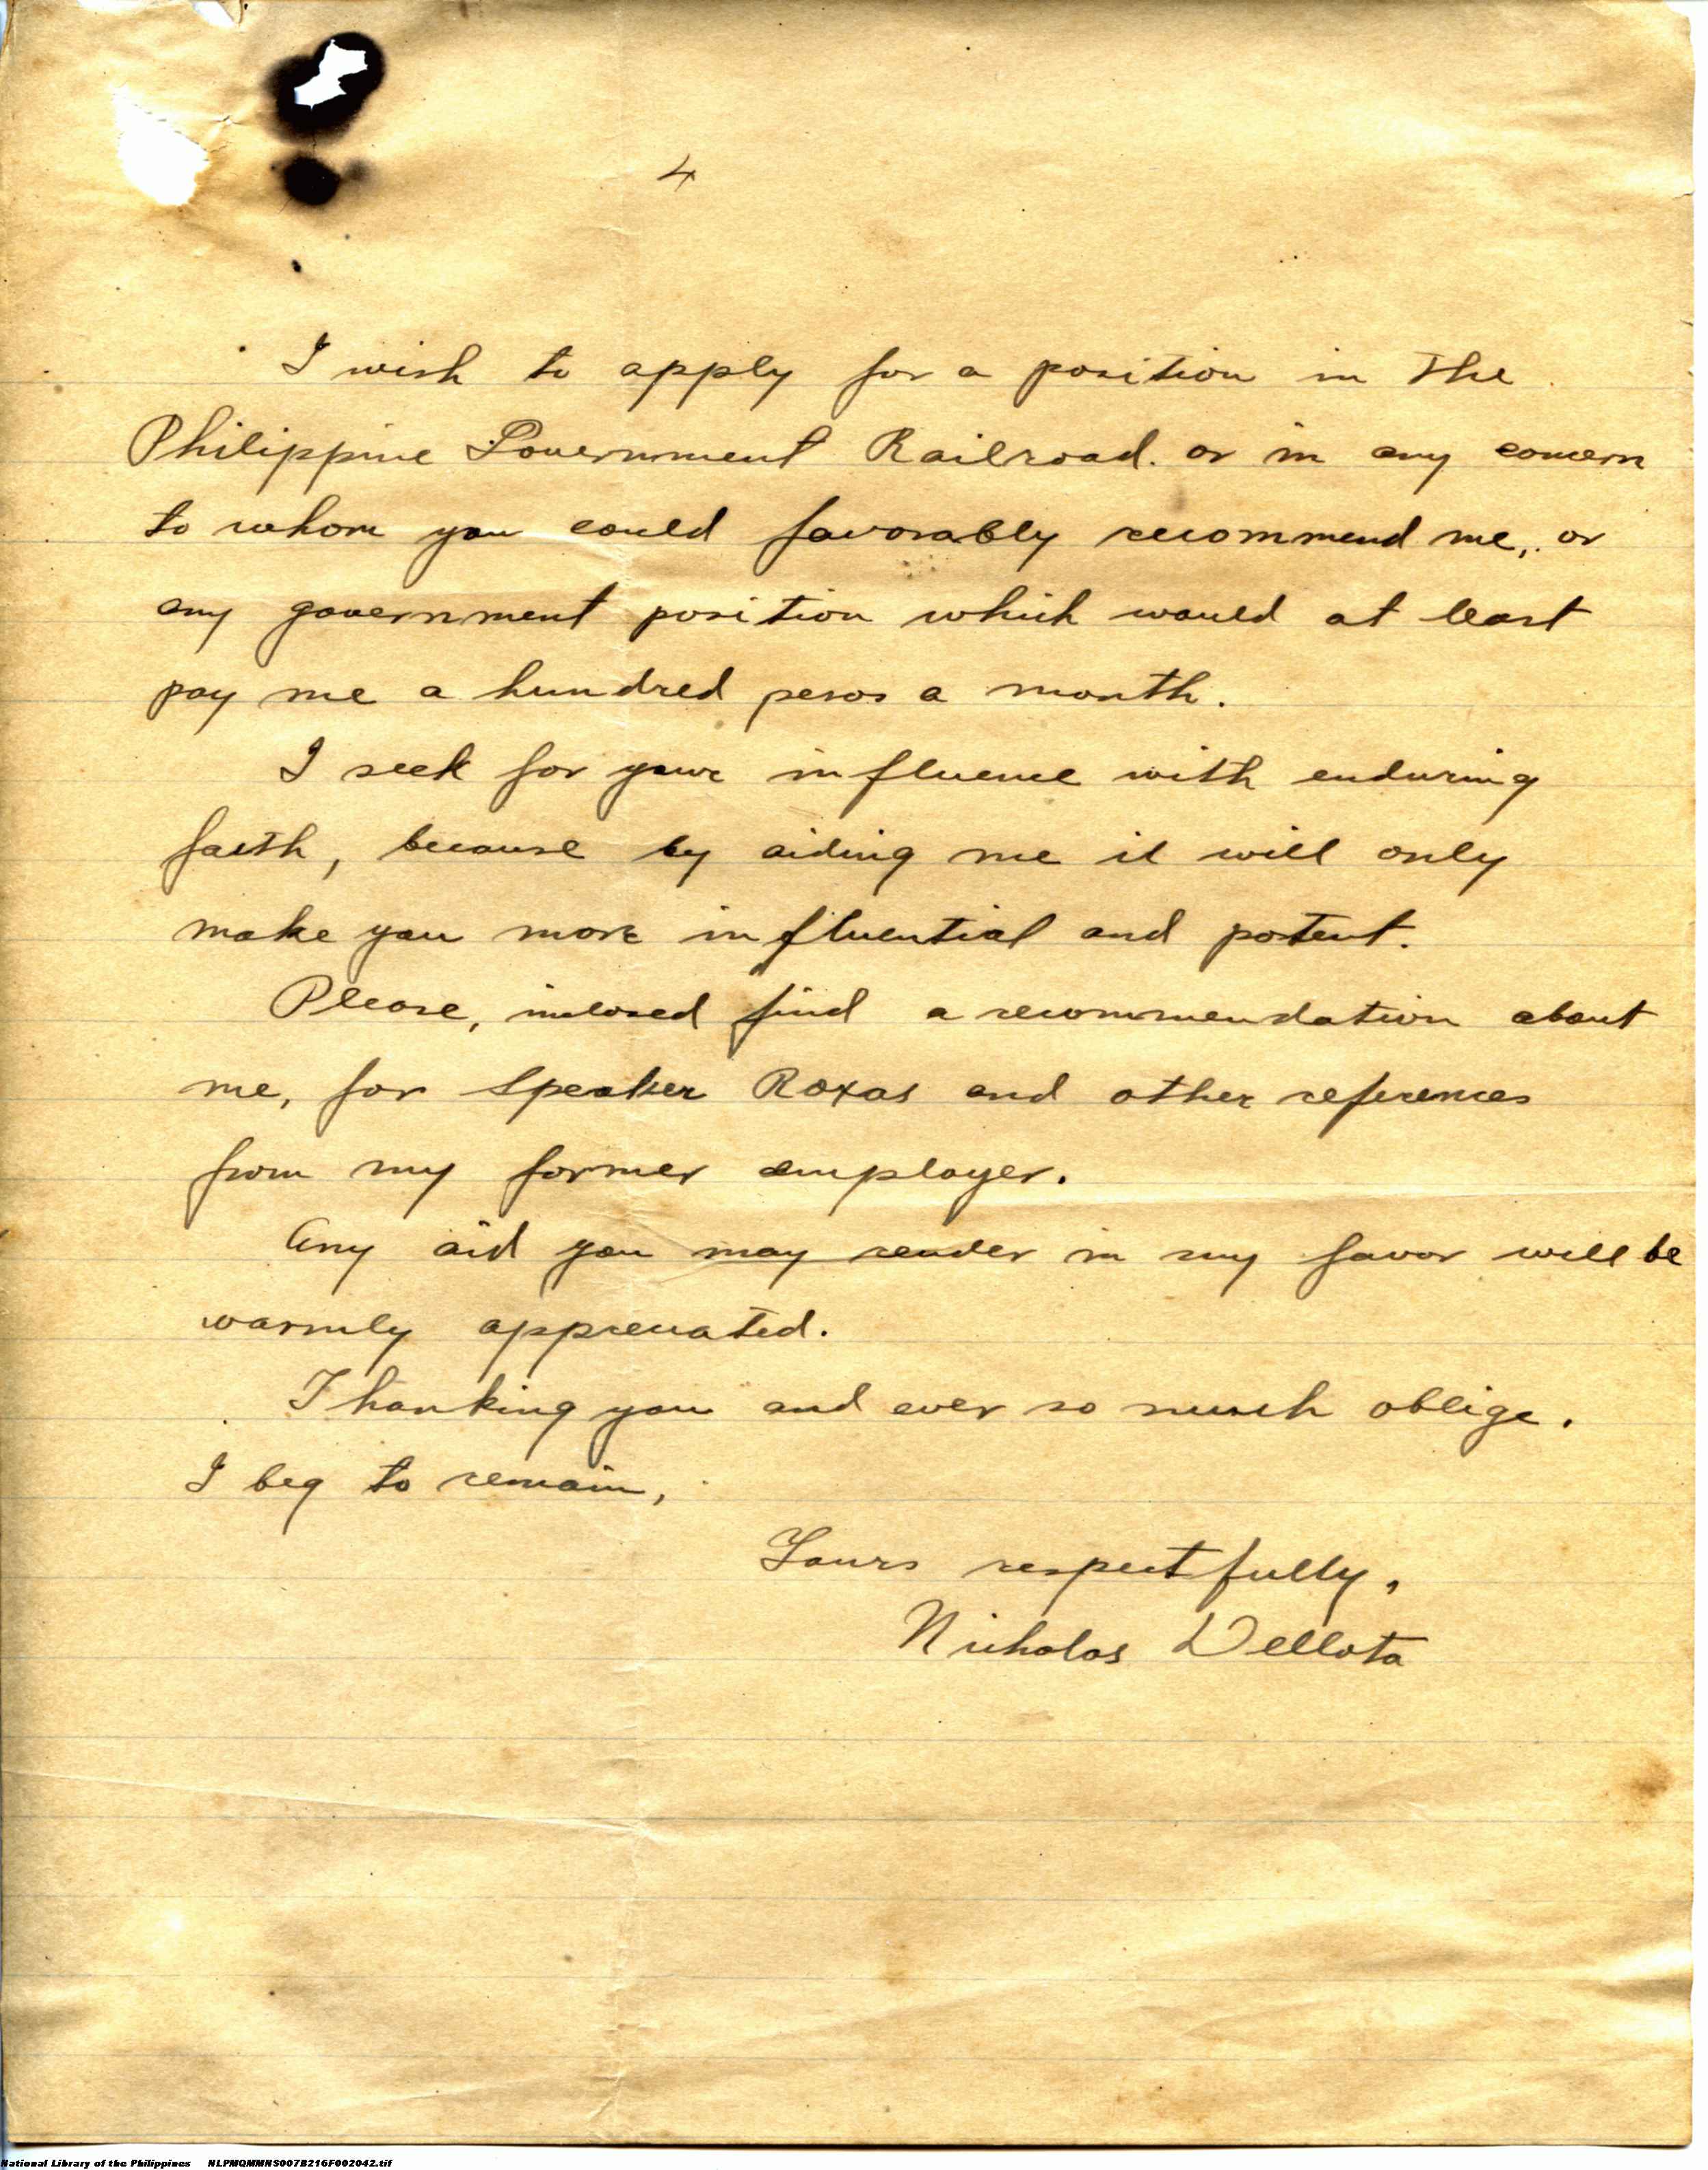 4
I wish to apply for a position in the
Philippine Government Railroad. or in any concern
to whom you could favorably recommend me, or
any government position which would at least
pay me a hundred pesos a month.
I seek for your influence with enduring
faith, because by aiding me it will only
make you more influential and potent.
Please, inclosed find a recommendation about
me, for Speaker Roxas and other references
from my former employer.
Any aid you may render in my favor will be
warmly appreciated.
Thanking you and ever so much oblige.
I beg to remain,
Yours respectfully,
Nicholas Dellota
National Library of the Philippines NLPMQMMNS007B216F002042.tif